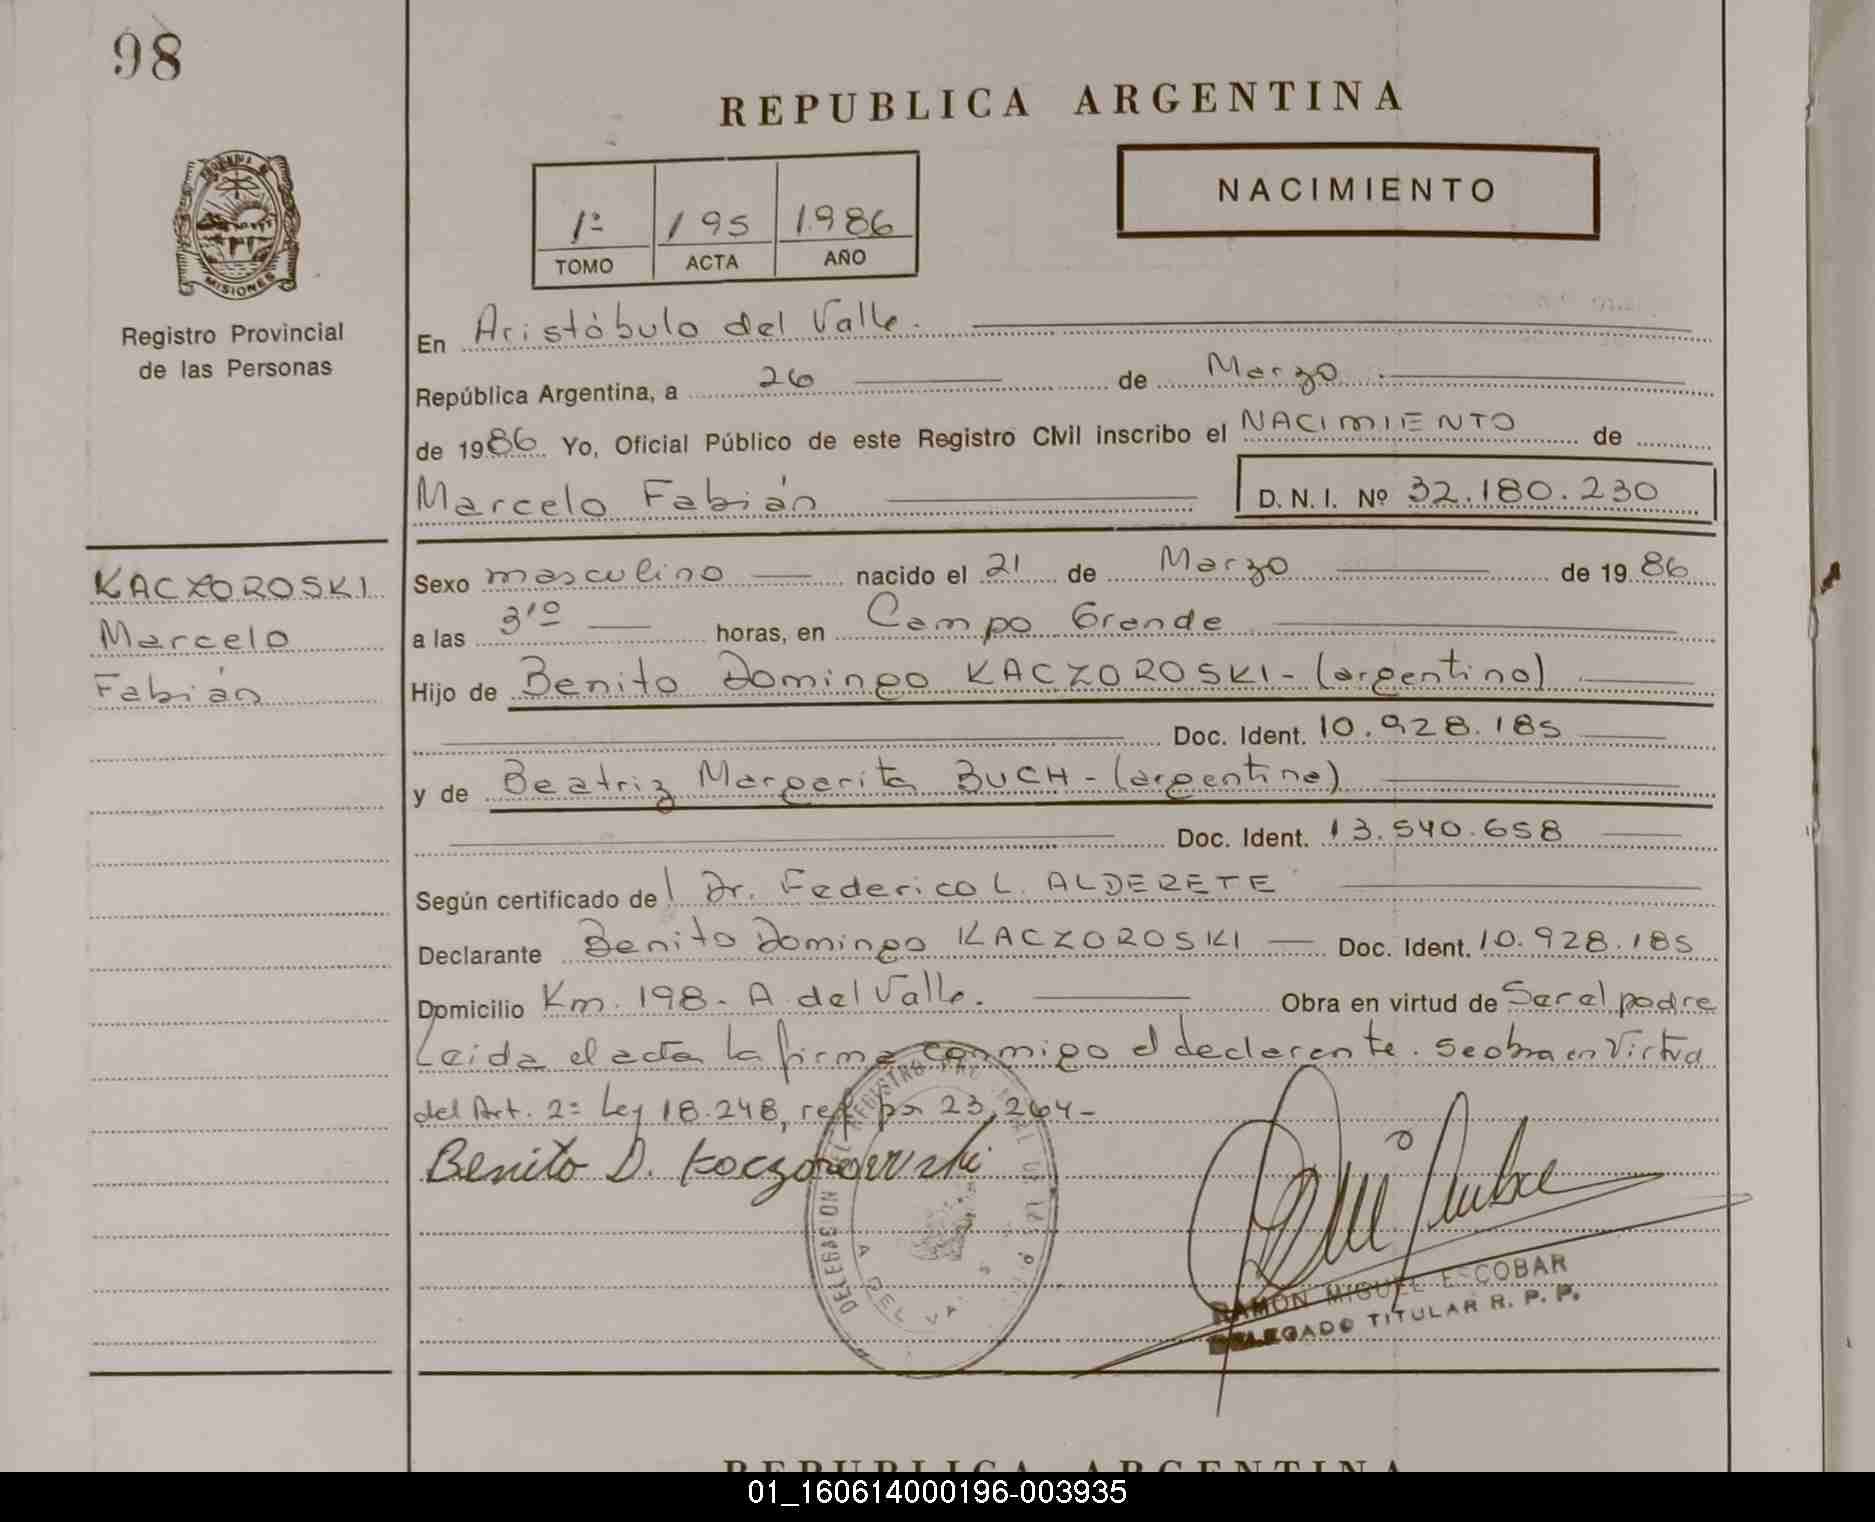 98
REPUBLICA ARGENTINA
NACIMIENTO
1º 195 1986
TOMO ACTA AÑO
MISIONES
Registro Provincial
de las Personas
En Aristóbulo del Valle.
República Argentina, a 26 de Marzo
de 1986 Yo, Oficial Público de este Registro Civil inscribo el NACIMIENTO de
Marcelo Fabián D. N. I. Nº 32.180.230
KACZOROSKI
Marcelo
Fabián
Sexo masculino nacido el 21 de Marzo de 1986
a las horas, en Campo Grande
Hijo de Benito Domingo KACZOROSKI - (argentino)
Doc. Ident. 10.928.185
y de Beatriz Margarita BUCH - (argentina)
Doc. Ident. 13.540.658
Según certificado del Dr. Federico L. ALDERETE
Declarante Benito Domingo KACZOROSKI Doc. Ident. 10.928.185
Domicilio Km. 198 - A. del Valle. Obra en virtud de Ser el padre
Leida el acta la firma conmigo el declarante. Se obra en Virtud
del Art. 2º Ley 18.248, ref. por 23,264 -
Benito D. Kaczorowski
DELEGACION DEL REGISTRO
A. DEL VA
RAMON MIGUEL ESCOBAR
DELEGADO TITULAR R. P. P.
REPUBLICA ARGENTINA
01_160614000196-003935